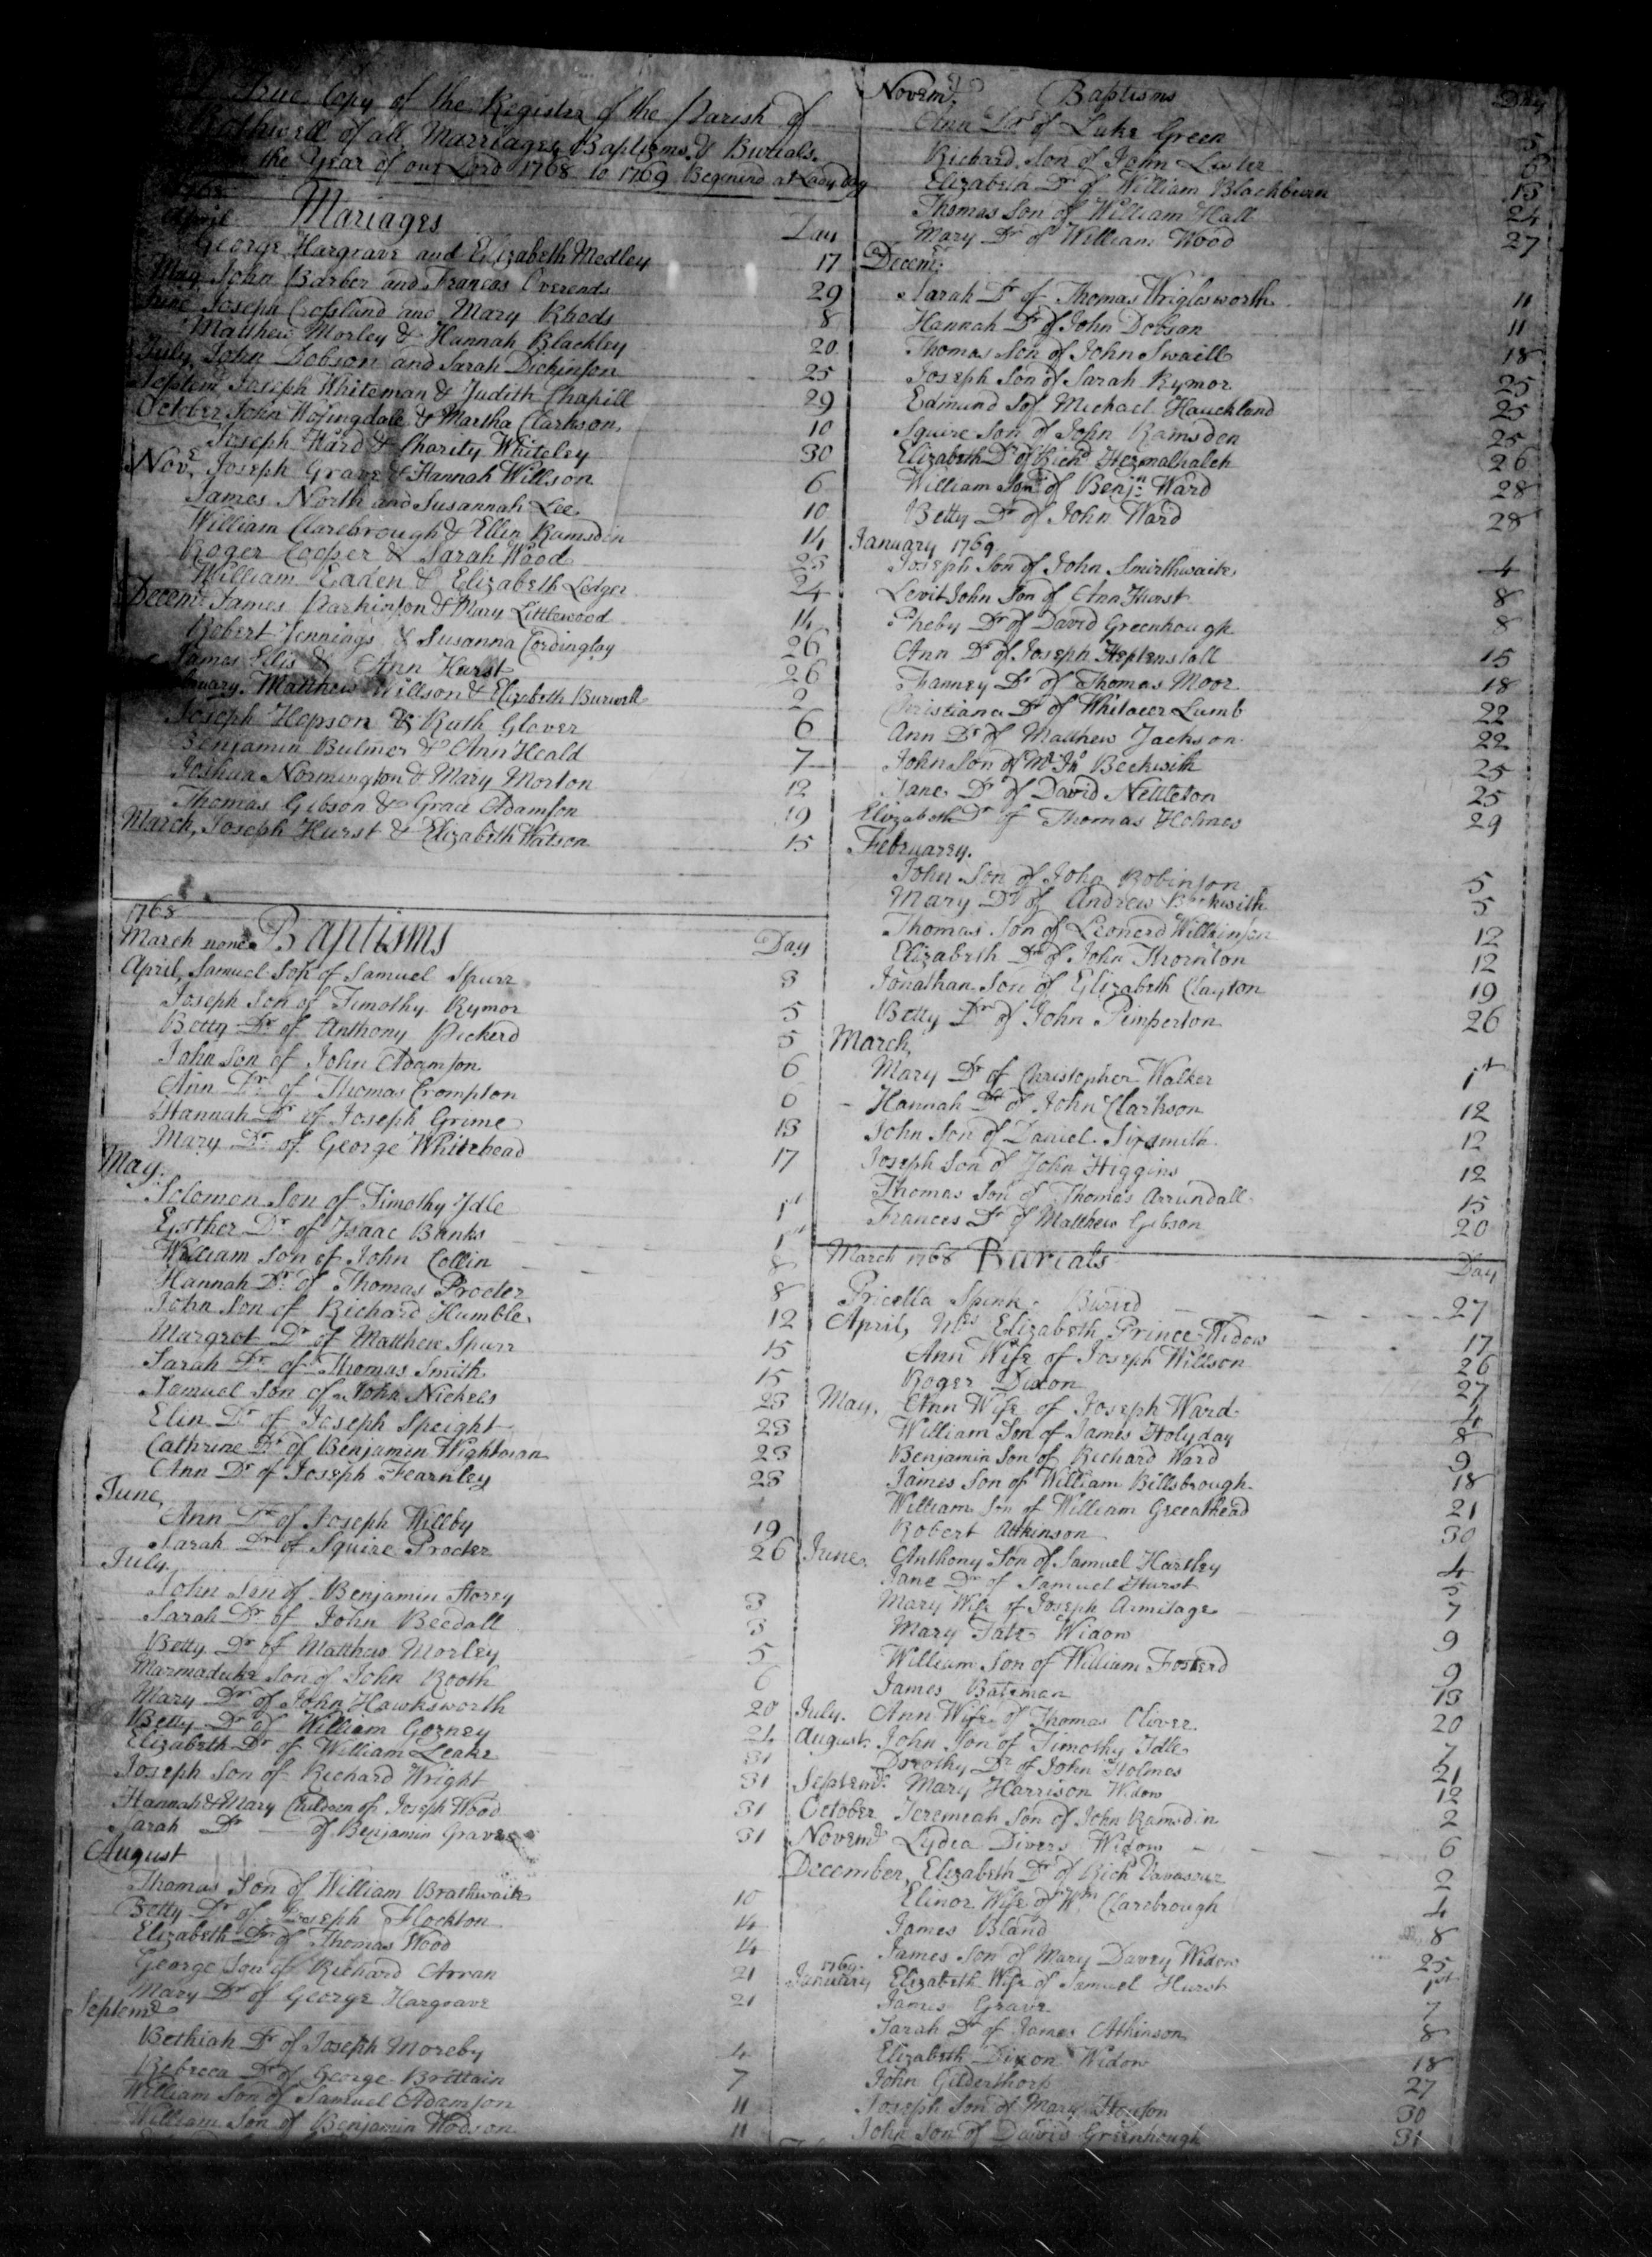 True Copy of the Register of the Parish of
Rothwell of all Marriages Baptizms & Burials.
the Year of our Lord 1768 to 1769 Begining at Lady Day
1768
Mariages
Day
April
George Hargrave and Elizabeth Medley 17
May John Barber and Frances Overends 29
June Joseph Crossland and Mary Rhods 8
Matthew Morley & Hannah Blackley 20
July John Dobson and Sarah Dickinson 25
Septem: Joseph Whiteman & Judith Chapill 29
October John Wossingdale & Martha Clarkson 10
Joseph Ward & Charity Whiteley 30
Nov: Joseph Grave & Hannah Willson 6
James North and Susannah Lee 10
William Clarebrough & Ellin Ramsdin 14
Roger Cooper & Sarah Wood 23
William Eaden & Elizabeth Ledger 24
Decem: James Parkinson & Mary Littlewood 14
Robert Jennings & Susanna Cordinglay 26
James Ellis & Ann Hurst 26
Matthew Willson & Elizabeth Burwell 2
Joseph Hopson & Ruth Glover 6
Benjamin Bulmer & Ann Heald 7
Joshua Normington & Mary Morton 12
Thomas Gibson & Grace Adamson 19
March, Joseph Hurst & Elizabeth Watson 15
1768
Baptisms
March none
Day
April, Samuel Son of Samuel Spurr 3
Joseph Son of Timothy Rymor 5
Betty Dr of Anthony Pickerd 5
John Son of John Adamson 6
Ann Dr of Thomas Crompton 6
Hannah Dr of Joseph Grime 13
Mary Dr of George Whitehead 17
May.
Solomon Son of Timothy Idle 1st
Esther Dr of Isaac Banks 1st
William Son of John Collin 8
Hannah Dr of Thomas Procter 8
John Son of Richard Humble 12
Margrot Dr of Matthew Spurr 15
Sarah Dr of Thomas Smith 15
Samuel Son of John Nickels 23
Elin Dr of Joseph Speight 23
Cathrine Dr of Benjamin Wightman 23
Ann Dr of Joseph Fearnley 23
June,
Ann Dr of Joseph Willby 19
Sarah Dr of Squire Procter 26
July.
John Son of Benjamin Storey 3
Sarah Dr of John Beedall 3
Betty Dr of Matthew Morley 5
Marmaduke Son of John Rooth 6
Mary Dr of John Hawksworth 20
Betty Dr of William Gozney 24
Elizabeth Dr of William Leake 31
Joseph Son of Richard Wright 31
Hannah & Mary Children of Joseph Wood 31
Sarah Dr of Benjamin Graves 31
August
Thomas Son of William Brathwaite 10
Betty Dr of Joseph Flockton 14
Elizabeth Dr of Thomas Wood 14
George Son of Richard Arran 21
Mary Dr of George Hargrave 21
Septemr
Bethiah Dr of Joseph Moreby 4
Rebecca Dr of George Brittain 7
William Son of Samuel Adamson 11
William Son of Benjamin Wodson 11
Novemr Baptisms Day
Ann Dr of Luke Green 5
Richard Son of John Lister 6
Elizabeth Dr of William Blackburn 13
Thomas Son of William Hall 24
Mary Dr of William Wood 27
Decemr
Sarah Dr of Thomas Wriglesworth 11
Hannah Dr of John Dobson 11
Thomas Son of John Swaill 18
Joseph Son of Sarah Rymor 25
Edmund S of Michael Hauckland 25
Squire Son of John Ramsden 25
Elizabeth Dr of Richd Hezmalhalch 26
William Son of Benjn Ward 28
Betty Dr of John Ward 28
January 1769
Joseph Son of John Smirthwaite 4
Levit John Son of Ann Hurst 8
Pheby Dr of David Greenhough 8
Ann Dr of Joseph Heptenstall 15
Fanney Dr of Thomas Moor 18
Christiana Dr of Whitacer Lumb 22
Ann Dr of Matthew Jackson 22
John Son of Mr Jn Beckwith 25
Jane Dr of David Nettleton 25
Elizabeth Dr of Thomas Holmes 29
Februarey.
John Son of John Robinson 5
Mary Dr of Andrew Beckwith 5
Thomas Son of Leonerd Willkinson 12
Elizabeth Dr of John Thornton 12
Jonathan Son of Elizabeth Clayton 19
Betty Dr of John Pimperton 26
March,
Mary Dr of Christopher Walker 1st
Hannah Dr of John Clarkson 12
John Son of Daniel Sixsmith 12
Joseph Son of John Higgins 12
Thomas Son of Thomas Arrundall 15
Frances Dr of Matthew Gibson 20
March 1768 Burials Day
Pricella Spink Buried 27
April, Mrs Elizabeth Prince Widow 17
Ann Wife of Joseph Willson 26
Roger Dixon 27
May. Ann Wife of Joseph Ward 4
William Son of James Holyday 8
Benjamin Son of Richard Ward 9
James Son of William Billsbrough 18
William Son of William Greeathead 21
Robert Attkinson 30
June. Anthony Son of Samuel Hartley 4
Jane Dr of Samuel Hurst 5
Mary Wife of Joseph Armitage 7
Mary Tate Widow 9
William Son of William Fosterd 9
James Bateman 13
July. Ann Wife of Thomas Oliver 20
August. John Son of Timothy Idle 7
Dorothy Dr of John Holmes 21
Septemr Mary Harrison Widow 12
October Jeremiah Son of John Ramsdin 2
Novemr Lydia Divers Widow 6
December, Elizabeth Dr of Richd Vavasour 2
Elinor Wife of Wm Clarebrough 4
James Bland 8
James Son of Mary Davey Widow 25
1769.
January Elizabeth Wife of Samuel Hurst 1st
James Grave 7
Sarah Dr of James Atkinson 8
Elizabeth Dixon Widow 18
John Gilderthorp 27
Joseph Son of Mary Hopson 30
John Son of David Greenhough 31